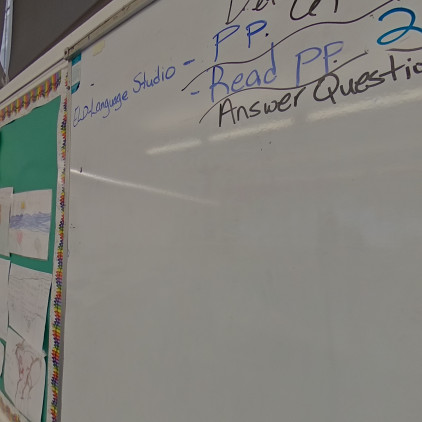 ELD-Language Studio - PP.
- Read PP. 2
Answer Questio